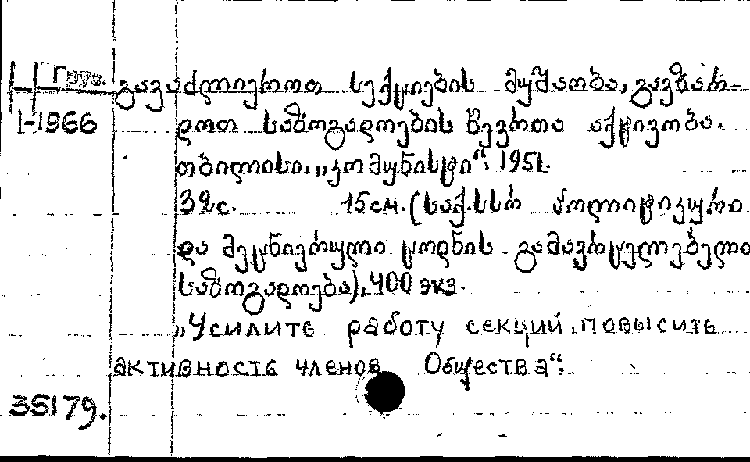 Груз. გავაძლიეროთ სექციების მუშაობა, გავზარ-
1-1966 დოთ საზოგადოების წევრთა აქტივობა.
თბილისი. „კომუნისტი“. 1951.
32с. 15см. (საქ.სსრ პოლიტიკური
და მეცნიერული ცოდნის გამავრცელებელი
საზოგადოება), 400 экз.
„Усилите работу секций, повысить
активность членов Общества“.
35179.